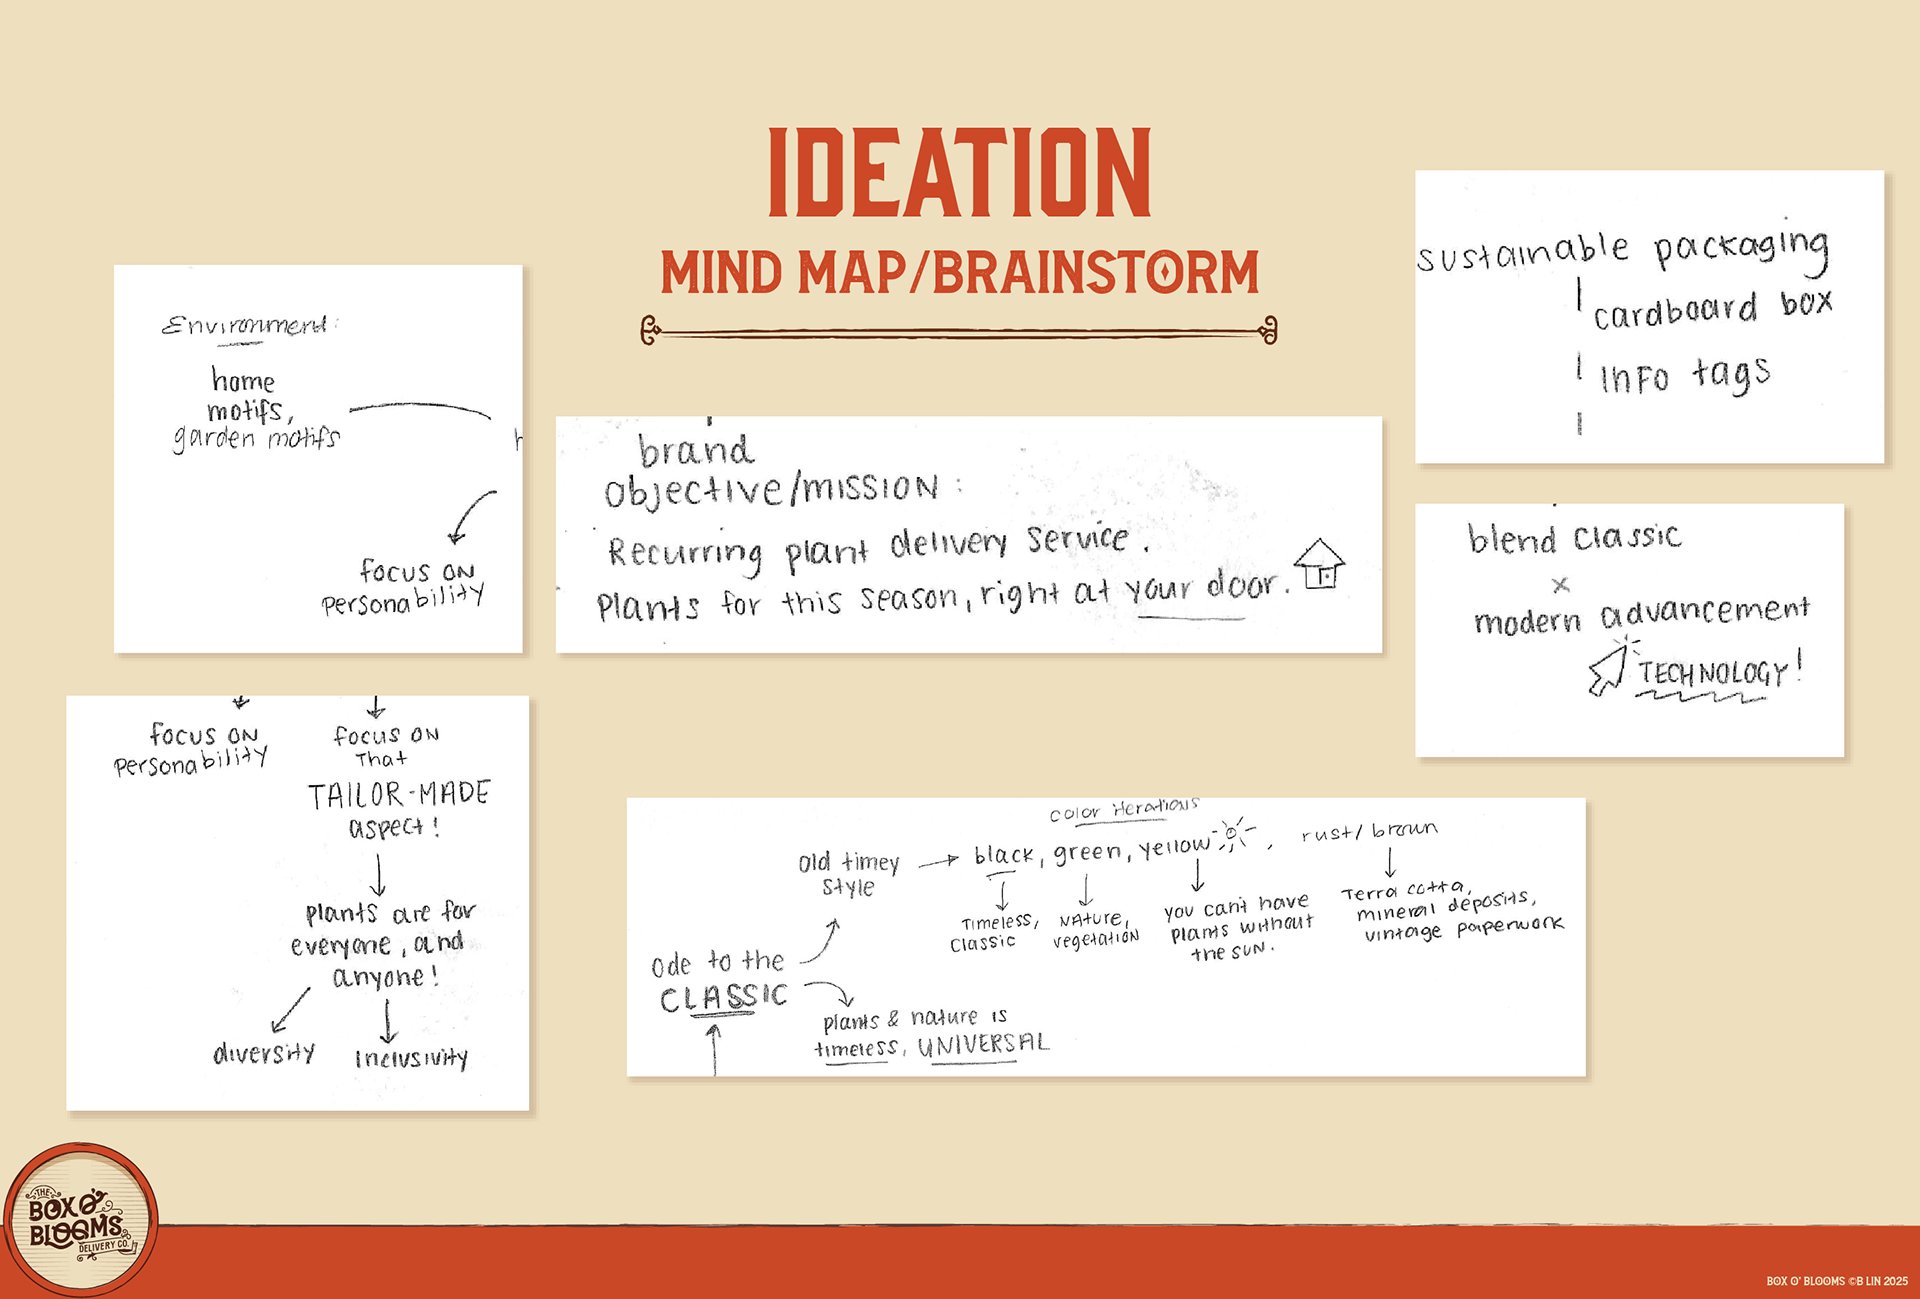 IDEATION
MIND MAP/BRAINSTORM
Environment:
home
motifs,
garden motifs
focus on
personability
brand
objective/mission:
Recurring plant delivery service.
Plants for this season, right at your door.
sustainable packaging
cardboard box
info tags
blend classic
x
modern advancement
TECHNOLOGY!
focus on
personability
focus on
that
TAILOR-MADE
aspect!
plants are for
everyone, and
anyone!
diversity
inclusivity
color iterations
old timey
style
black, green, yellow, rust/brown
timeless,
classic
nature,
vegetation
you can't have
plants without
the sun.
Terra cotta,
mineral deposits,
vintage paperwork
ode to the
CLASSIC
plants & nature is
timeless, UNIVERSAL
THE
BOX O'
BLOOMS
DELIVERY CO.
BOX O' BLOOMS ©B LIN 2025